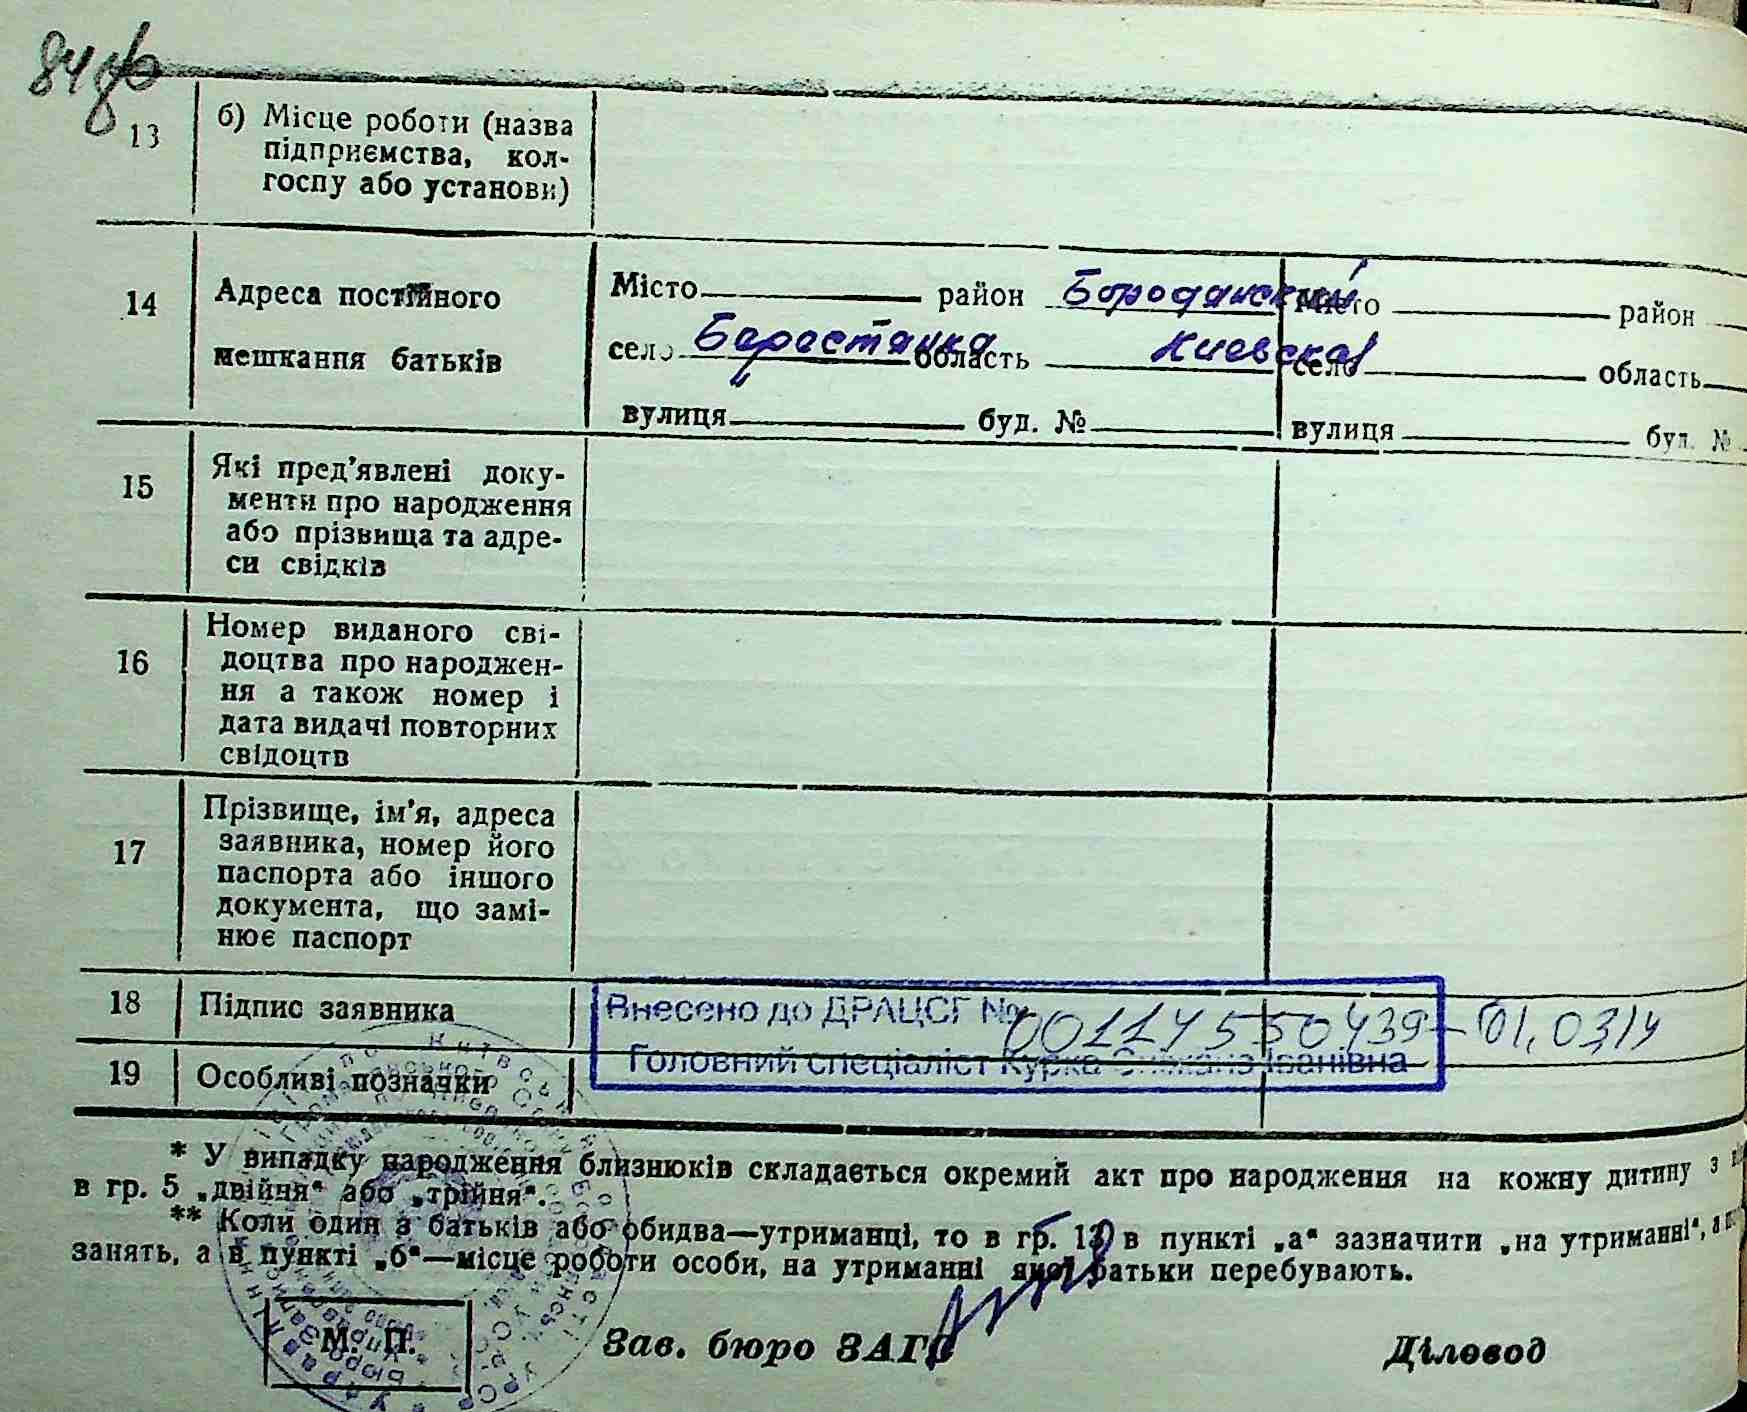 84
13 б) Місце роботи (назва
підприємства, кол-
госпу або установи)
14 Адреса постійного
мешкання батьків
Місто район Бородянский Місто район
село Берестянка область Киевская село область
вулиця буд. № вулиця буд. №
15 Які пред'явлені доку-
менти про народження
або прізвища та адре-
си свідків
16 Номер виданого сві-
доцтва про народжен-
ня а також номер і
дата видачі повторних
свідоцтв
17 Прізвище, ім'я, адреса
заявника, номер його
паспорта або іншого
документа, що замі-
нює паспорт
18 Підпис заявника
Внесено до ДРАЦСГ № 00117550439 - 01.03.14
Головний спеціаліст Курка Іванівна
19 Особливі позначки
* У випадку народження близнюків складається окремий акт про народження на кожну дитину з
в гр. 5 „двійня“ або „трійня“.
** Коли один з батьків або обидва—утриманці, то в гр. 13 в пункті „а“ зазначити „на утриманні“, а
занять, а в пункті „б“—місце роботи особи, на утриманні якої батьки перебувають.
М. П. Зав. бюро ЗАГС Діловод